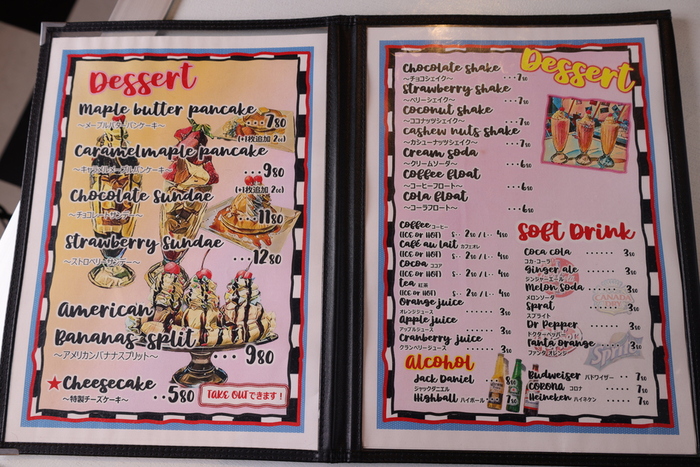 Dessert
Maple butter pancake
〜メープルバターパンケーキ〜 ・・・780
(+1枚追加 200)
Caramelmaple pancake
〜キャラメルメープルパンケーキ〜 ・・・980
(+1枚追加 200)
Chocolate Sundae
〜チョコレートサンデー〜 ・・・1180
Strawberry Sundae
〜ストロベリーサンデー〜 ・・・1280
American
Bananas split
〜アメリカンバナナスプリット〜 ・・・980
★Cheesecake
〜特製チーズケーキ〜 ・・580
TAKE OUTできます!
Dessert
Chocolate shake
〜チョコシェイク〜 ・・・750
Strawberry shake
〜ベリーシェイク〜 ・・・750
Coconut shake
〜ココナッツシェイク〜 ・・・750
cashew nuts shake
〜カシューナッツシェイク〜 ・・・750
Cream soda
〜クリームソーダ〜 ・・・650
Coffee float
〜コーヒーフロート〜 ・・・650
Cola float
〜コーラフロート〜 ・・・650
Soft Drink
Coffee コーヒー
(ICE or HOT) S・・250/L・・450
Café au lait カフェオレ
(ICE or HOT) S・・250/L・・450
Cocoa ココア
(ICE or HOT) S・・250/L・・450
tea 紅茶
(ICE or HOT) S・・250/L・・450
Orange juice
オレンジジュース ・・・・・・350
Apple juice
アップルジュース ・・・・・・350
Cranberry juice
クランベリージュース ・・・・・350
Coca cola ・・・・・・350
コカ・コーラ
Ginger ale ・・・・・350
ジンジャーエール
Melon Soda ・・・・・350
メロンソーダ
Sprat ・・・・・・350
スプライト
Dr Pepper ・・・・・350
ドクターペッパー
Fanta orange ・・・・350
ファンタオレンジ
CANADA
Sprite
Alcohol
Jack Daniel ・・850
ジャックダニエル
Highball ハイボール・・750
Budweiser バドワイザー ・・750
CORONA コロナ ・・750
Heineken ハイネケン ・・750